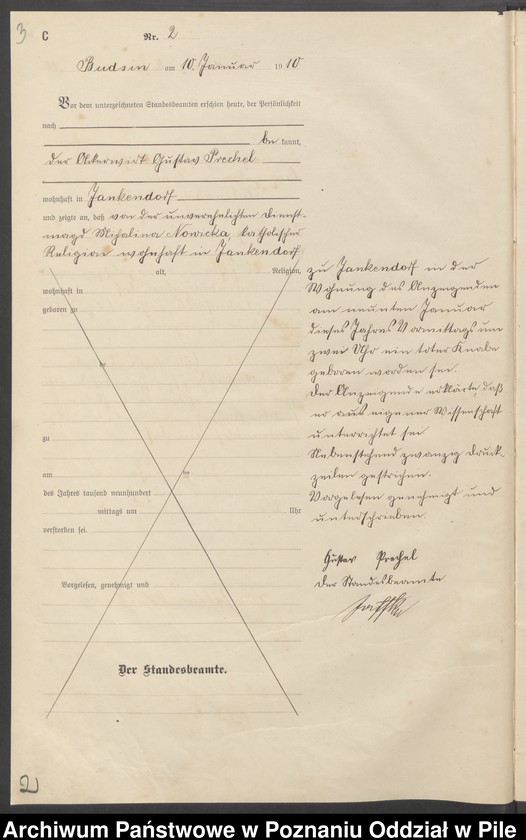 3
C
Nr. 2
Budsin am 10. Januar 1910
Vor dem unterzeichneten Standesbeamten erschien heute, der Persönlichkeit
nach
be kannt,
der Ackerwirt Gustav Prechel
wohnhaft in Jankendorf
und zeigte an, daß von der unverehelichten Dienst-
magd Michalina Nowicka, katholischer
Religion wohnhaft in Jankendorf
alt, Religion,
wohnhaft in
geboren zu
zu
am
des Jahres tausend neunhundert
mittags um Uhr
verstorben sei.
Vorgelesen, genehmigt und
Der Standesbeamte.
zu Jankendorf in der
Wohnung des Anzeigenden
am neunten Januar
dieses Jahres Vormittags um
zwei Uhr ein toter Knabe
geboren worden sei.
Der Anzeigende erklärte, daß
er aus eigener Wissenschaft
unterrichtet sei
Nebenstehend zwanzig Druck-
zeilen gestrichen.
Vorgelesen genehmigt und
unterschrieben.
Gustav Prechel
Der Standesbeamte
2
Archiwum Państwowe w Poznaniu Oddział w Pile